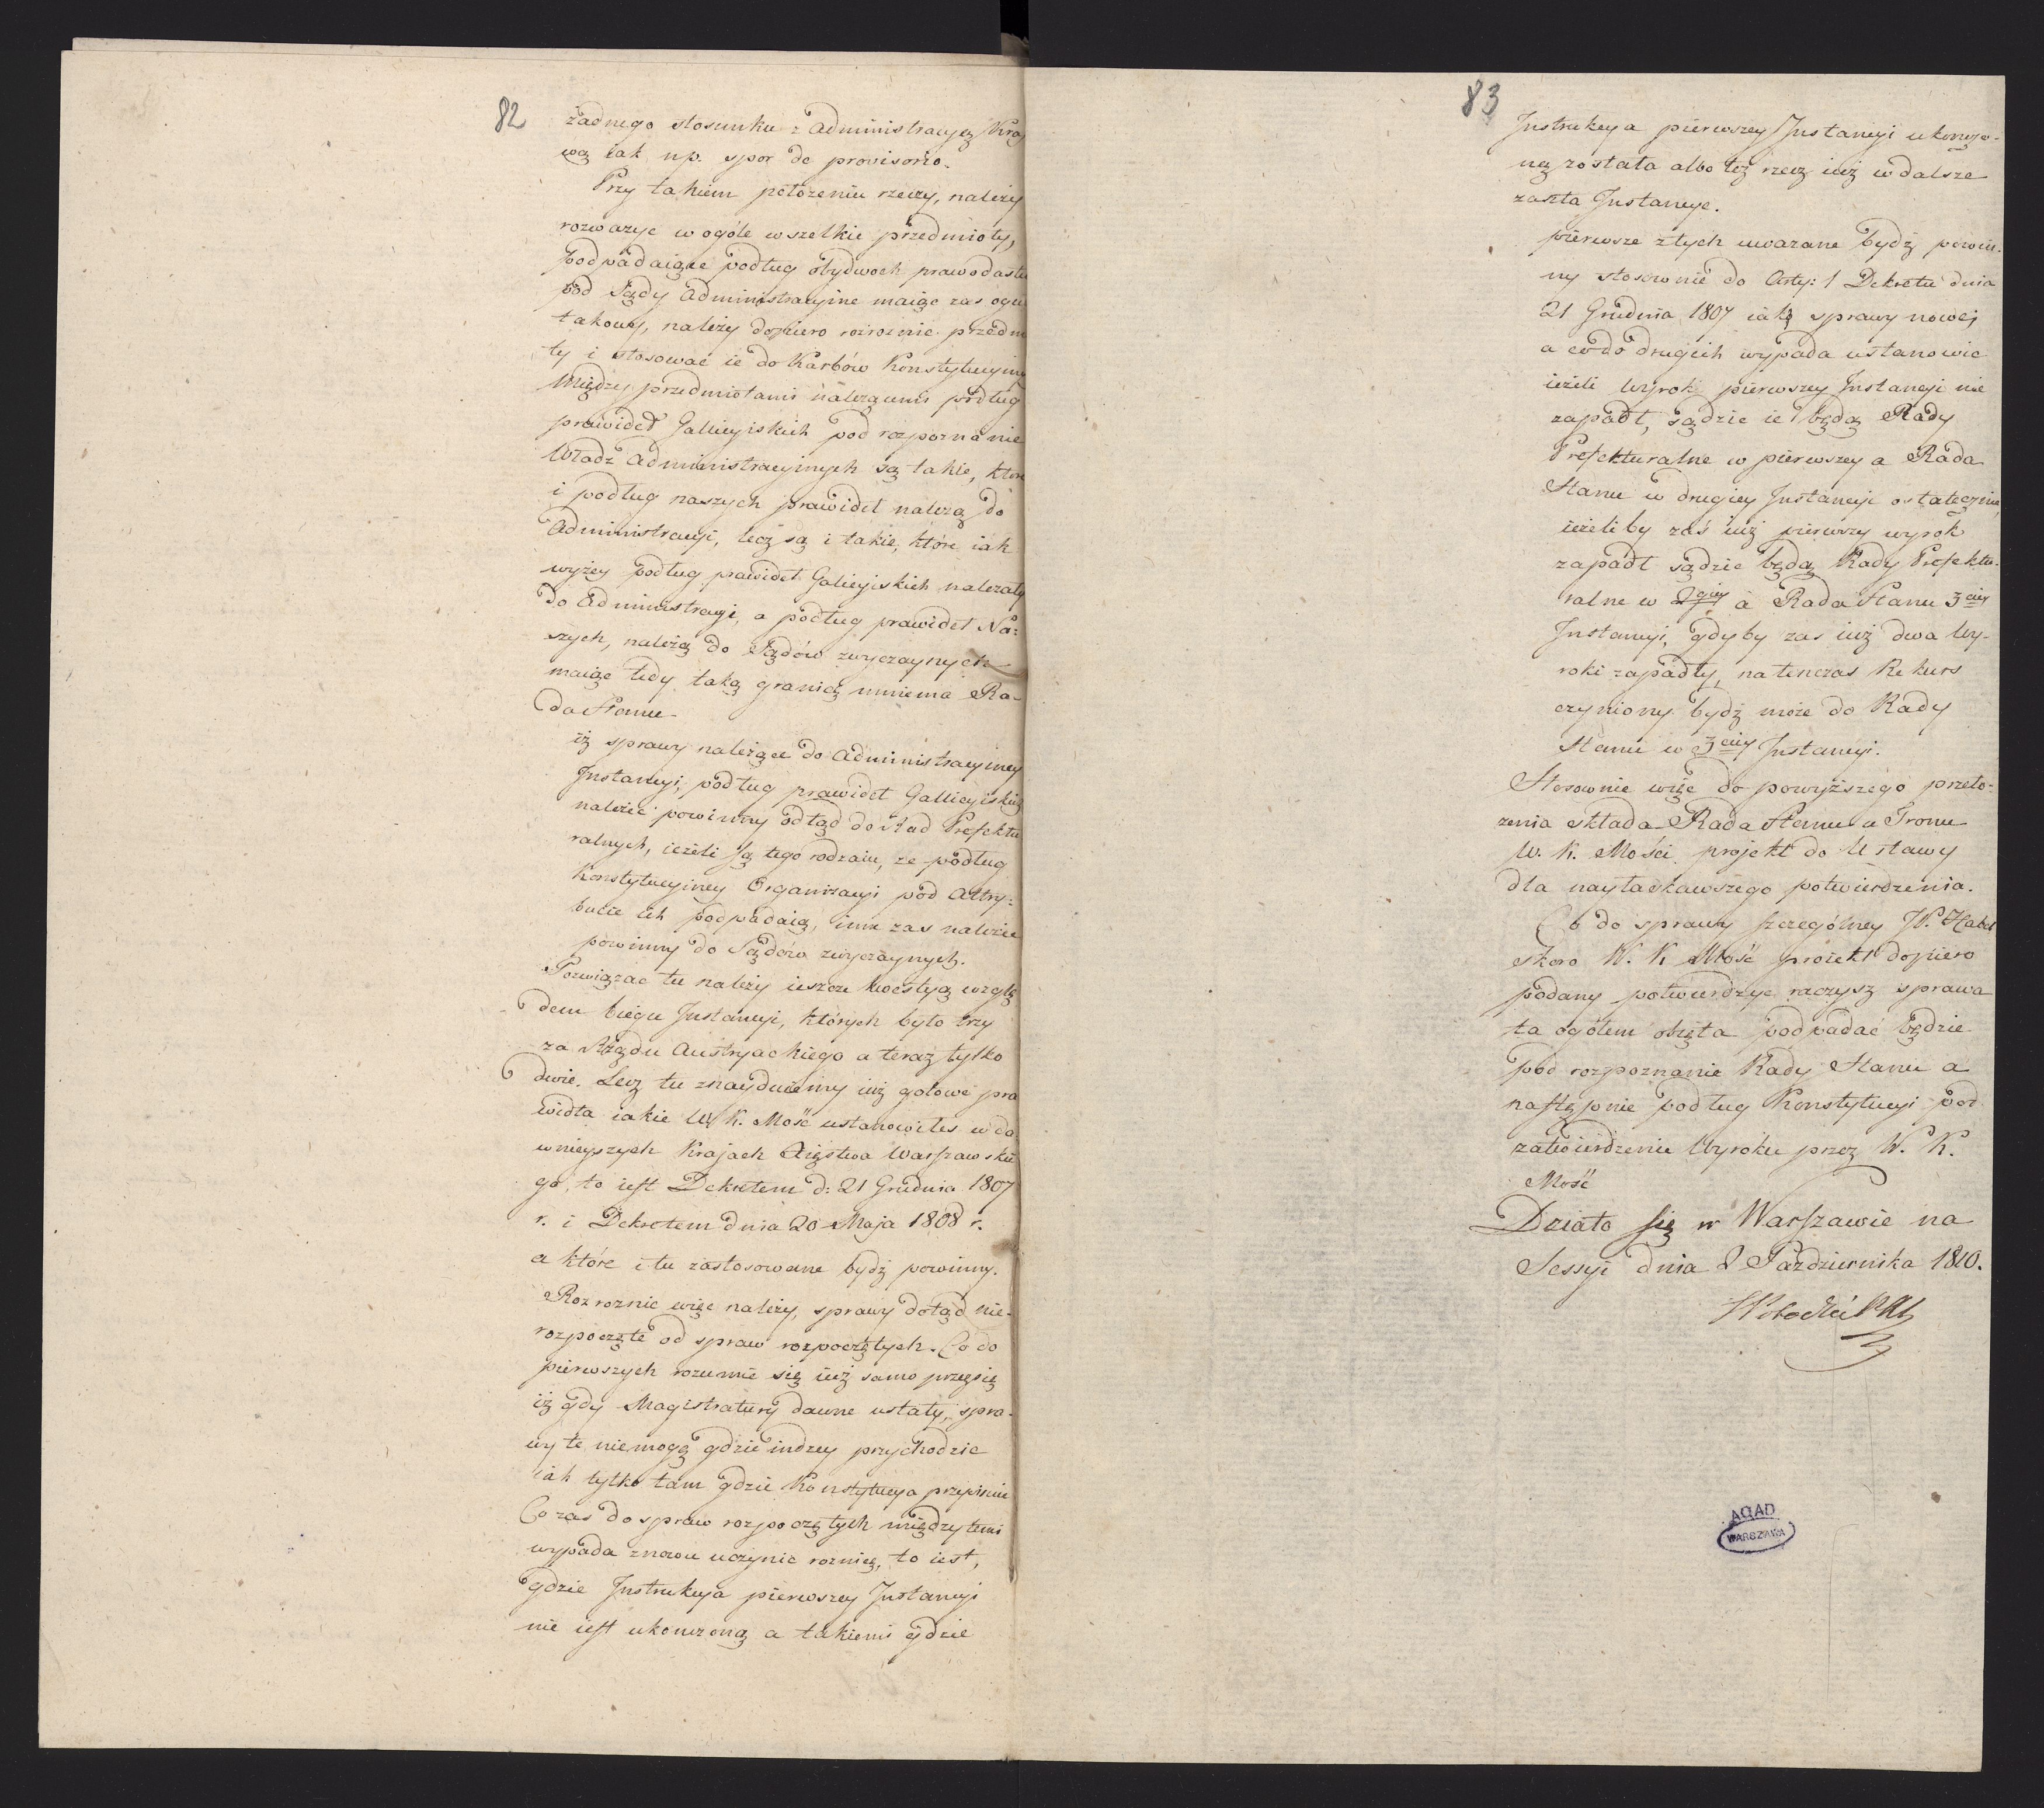 82
żadnego stosunku z administracyą Kraj
wą iak np. spor de provisorio.
Przy takiem położeniu rzeczy, należy
rozważyc w ogóle wszelkie przedmioty,
podpadaiące podług obydwoch prawodastw
pod Sądy administracyine maiąc zas ogół
takowy, należy dopiero rozroznic przedmi
ty i stosować ie do Karbów Konstytucyiny
Między przedmiotami należącemi podług
prawideł Gallicyiskich pod rozpoznanie
Władz administracyinych są takie, ktore
i podług naszych prawideł należą do
administracyi, lecz są i takie, które iak
wyżey podług prawideł Galicyiskich należały
do administracyi, a podług prawideł Na:
szych, należą do Sądów zwyczaynych
maiąc tedy taką granicę mniema Ra-
da Stanu
iż sprawy należące do administracyiney
Instancyi, podług prawideł Gallicyiskich
należeć powinny odtąd do Rad Prefektu
ralnych, ieżeli są tego rodzaiu, ze podług
Konstytucyiney Organizacyi pod attry:
bucie ich podpadaią, inne zas należec
powinny do Sądów zwyczaynych.
Rozwiązac tu należy ieszcze kwestyą wzglę
dem biegu Instancyi, których było trzy
za Rządu Austryackiego a teraz tylko
dwie. Lecz tu znayduiemy iuż gotowe pra
widła iakie W. K. Mość ustanowiłes w da
wnieyszych Krajach Xięstwa Warszawskie
go, to iest Dekretem d: 21 Grudnia 1807
r. i Dekretem dnia 20 Maja 1808 r.
a które i tu zastosowane bydź powinny.
Rozroznic więc należy, sprawy dotąd nie-
rozpoczęte od spraw rozpoczętych. Co do
pierwszych rozumie się iuż samo przezsię
iż gdy Magistratury dawne ustały, spra-
wy te niemogą gdzieindzey przychodzic
iak tylko tam gdzie Konstytucya przepisuie
Co zas do spraw rozpoczętych między temi
wypada znowu uczynic roznicę, to iest,
gdzie Instrukcya pierwszey Instancyi
nie iest ukonczoną a takiemi gdzie
83
Instrukcya pierwszey Instancyi ukonczo-
ną została albo też rzecz iuż w dalsze
zaszła Instancye.
pierwsze z tych uwazane bydź powin-
ny stosownie do Arty: 1 Dekretu dnia
21 Grudnia 1807 iako sprawy nowe,
a co do drugich wypada ustanowic
ieżeli Wyrok pierwszey Instancyi nie
zapadł, sądzic ie będą Rady
Prefekturalne w pierwszey a Rada
Stanu w drugiey Instancyi ostatecznie,
ieżeliby zaś iuż pierwszy wyrok
zapadł sądzic będą Rady Prefektu-
ralne w 2giey a Rada Stanu 3ciey
Instancyi, gdyby zas iuż dwa Wy-
roki zapadły, natenczas Rekurs
czyniony bydź może do Rady
Stanu w 3ciey Instancyi.
Stosownie więc do powyższego przeło-
żenia składa Rada Stanu u Tronu
W. K. Mości projekt do Ustawy
dla nayłaskawszego potwierdzenia.
Co do sprawy szczególney JP. Habel
skoro W. K Mość proiekt dopiero
podany potwierdzyc raczysz sprawa
ta ogółem obięta podpadać będzie
pod rozpoznanie Rady Stanu a
następnie podług Konstytucyi pod
zatwierdzenie Wyroku przez W. K.
Mość
Działo się w Warszawie na
Sessyi dnia 2 Pazdziernika 1810.
AGAD
WARSZAWA